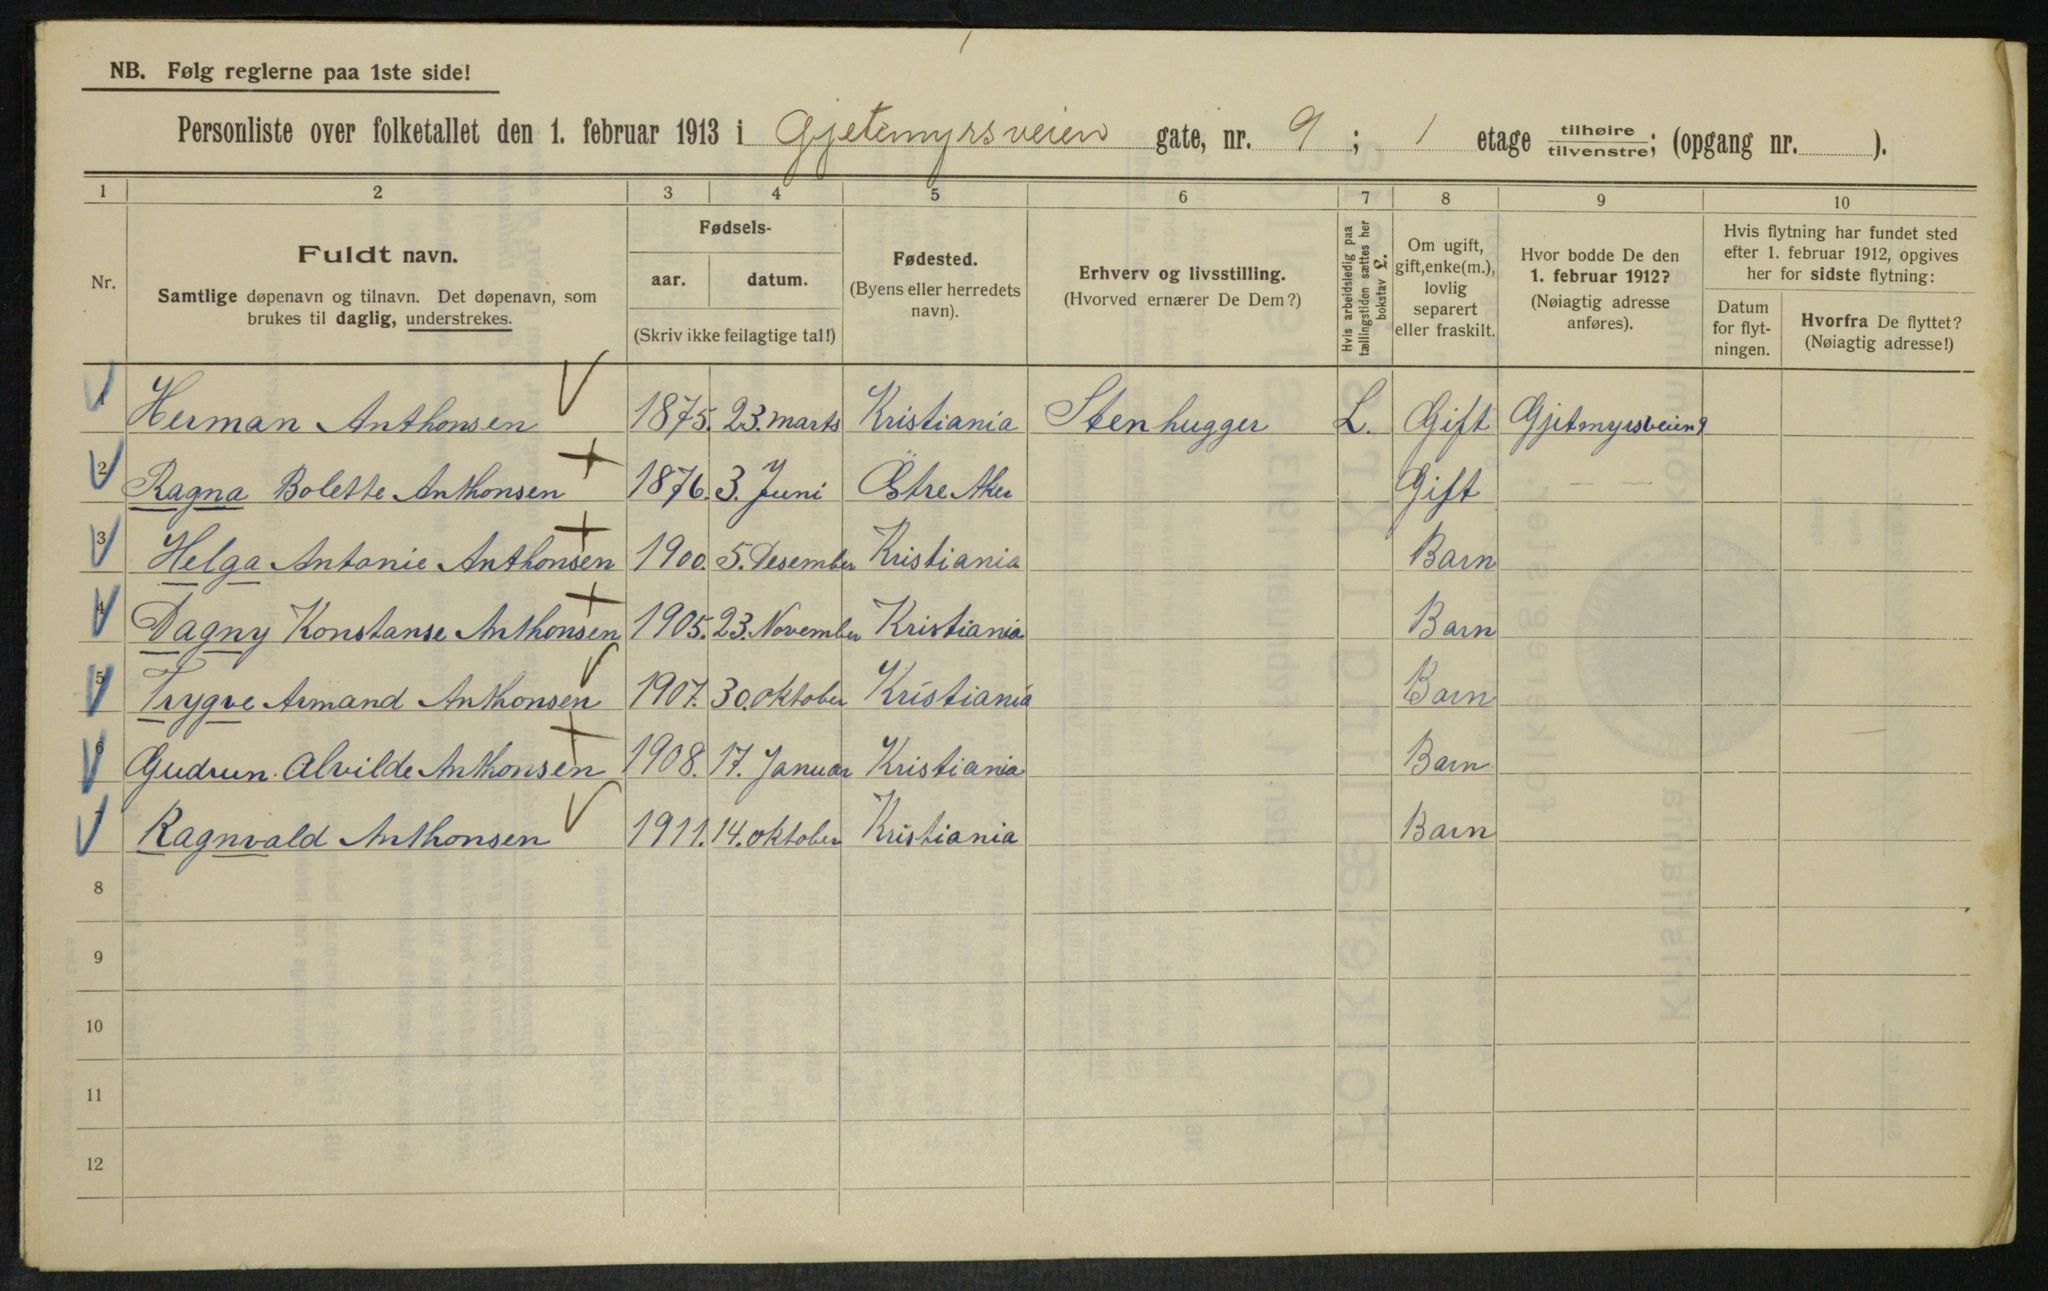 NB. Følg reglerne paa 1ste side!
Personliste over folketallet den 1. februar 1913 i Gjetemyrsveien gate, nr. 9 ; 1 etage tilhøire / tilvenstre; (opgang nr. ).
1 2 3 4 5 6 7 8 9 10
Nr.
Fuldt navn.
Samtlige døpenavn og tilnavn. Det døpenavn, som
brukes til daglig, understrekes.
Fødsels-
aar. datum.
(Skriv ikke feilagtige tal!)
Fødested.
(Byens eller herredets
navn).
Erhverv og livsstilling.
(Hvorved ernærer De Dem?)
Hvis arbeidsledig paa
tællingstiden sættes her
bokstav L.
Om ugift,
gift, enke(m.),
lovlig
separert
eller fraskilt.
Hvor bodde De den
1. februar 1912?
(Nøiagtig adresse
anføres).
Hvis flytning har fundet sted
efter 1. februar 1912, opgives
her for sidste flytning:
Datum
for flyt-
ningen.
Hvorfra De flyttet?
(Nøiagtig adresse!)
1 Herman Anthonsen 1875. 23. marts Kristiania Stenhugger L. Gift Gjetmyrsveien 9
2 Ragna Bolette Anthonsen 1876. 3. Juni Östre Aker Gift — —
3 Helga Antonie Anthonsen 1900. 5. Desember Kristiania Barn
4 Dagny Konstanse Anthonsen 1905. 23. November Kristiania Barn
5 Trygve Armand Anthonsen 1907. 30. oktober Kristiania Barn
6 Gudrun. Alvilde Anthonsen 1908. 17. Januar Kristiania Barn
7 Ragnvald Anthonsen 1911. 14. oktober Kristiania Barn
8
9
10
11
12